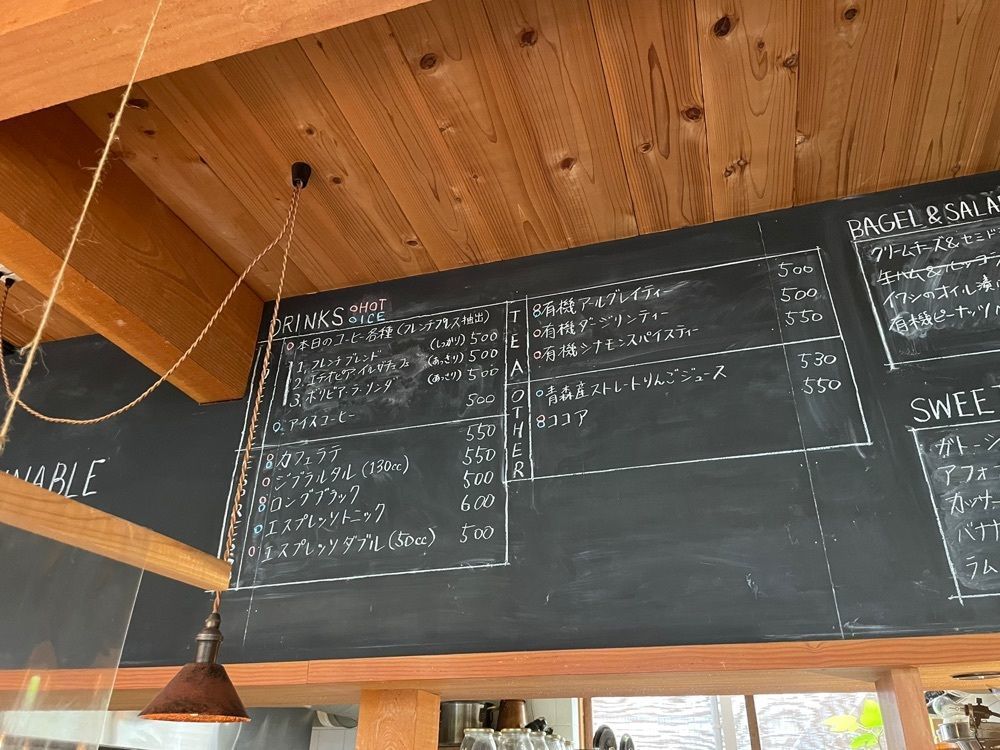 DRINKS HOT
ICE
本日のコーヒー各種 (フレンチプレス抽出)
1. フレンチブレンド (しっかり) 500
2. エチオピア・イルガチェフェ (あっさり) 500
3. ボリビア・ラ・リンダ (あっさり) 500
アイスコーヒー 500
カフェラテ 550
ジブラルタル (130cc) 550
ロングブラック 500
エスプレッソトニック 600
エスプレッソダブル (50cc) 500
TEA
有機アールグレイティー 500
有機ダージリンティー 500
有機シナモンスパイスティー 550
OTHER
青森産ストレートりんごジュース 530
ココア 550
BAGEL & SALA
クリームチーズ&セミド
生ハム&
イワシのオイル漬
有機ピーナッツ
SWEE
ガトー
アフォ
カッサー
バナナ
ラム
NABLE